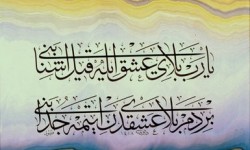 يا رب بلاى عشق ايله قيل آشنا بنى
بر دم بلاى عشقدن ايتمه جدا بنى